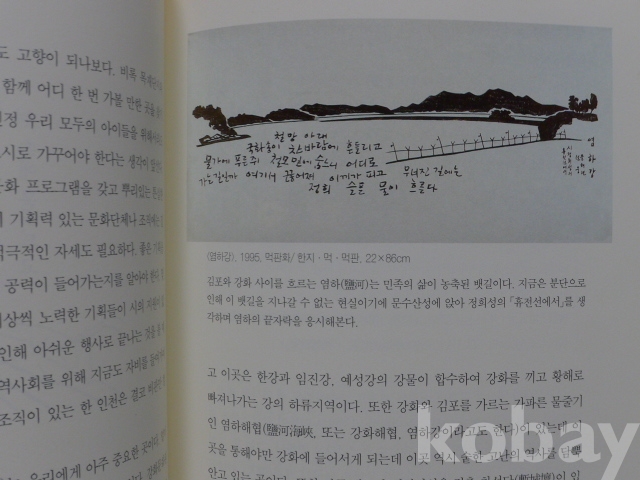 도 고향이 되나보다. 비목
함께 어디 한 번 가볼 만한 곳을
우리 모두의 아이들을 위해서
시로 가꾸어야 한다는 생각이
프로그램을 갖고 뿌리있는
기획력 있는 문화단체나
극적인 자세도 필요하다. 좋은
공력이 들어가는지를 알아야
이상씩 노력한 기획들이 시의
인해 아쉬운 행사로 끝나는 것을
역사회를 위해 지금도 자비를
조직이 있는 한 인천은 결코
우리에게 아주 중요한 곳이다.
철망 아래
국화송이 찬바람에 흔들리고
물가에 철모 밑에 숨느니 어디로
가는 길인가 여기서 끊어져 이끼가 피고 무너진 길에는
정희 슬픈 물이 흐른다
염하강
〈염하강〉, 1995, 먹판화/ 한지·먹·먹판, 22×86cm
김포와 강화 사이를 흐르는 염하(鹽河)는 민족의 삶이 농축된 뱃길이다. 지금은 분단으로
인해 이 뱃길을 지나갈 수 없는 현실이기에 문수산성에 앉아 정희성의 「휴전선에서」를 생
각하며 염하의 끝자락을 응시해본다.
고 이곳은 한강과 임진강, 예성강의 강물이 합수하여 강화를 끼고 황해로
빠져나가는 강의 하류지역이다. 또한 강화와 김포를 가르는 가파른 물줄기
인 염하해협(鹽河海峽, 또는 강화해협, 염하강이라고도 한다)이 있는데 이
곳을 통해야만 강화에 들어서게 되는데 이곳 역시 숱한 고난의 역사를 담뿍
안고 있는 곳이다.
kobay